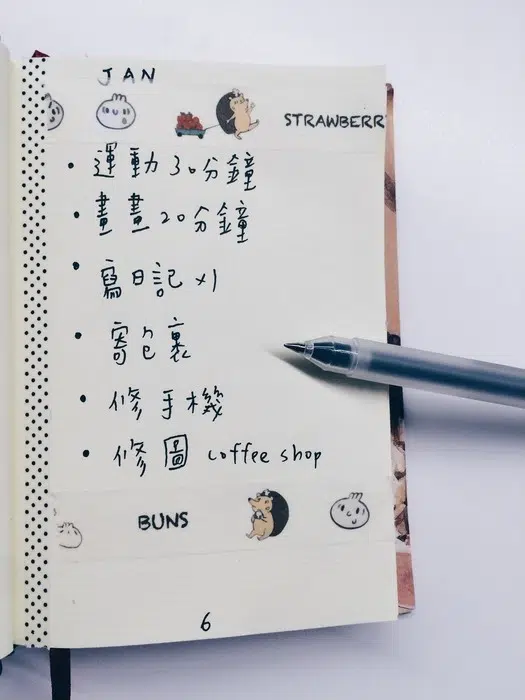 JAN
STRAWBERR
• 運動30分鐘
• 畫畫20分鐘
• 寫日記x1
• 寄包裹
• 修手機
• 修圖 coffee shop
BUNS
6